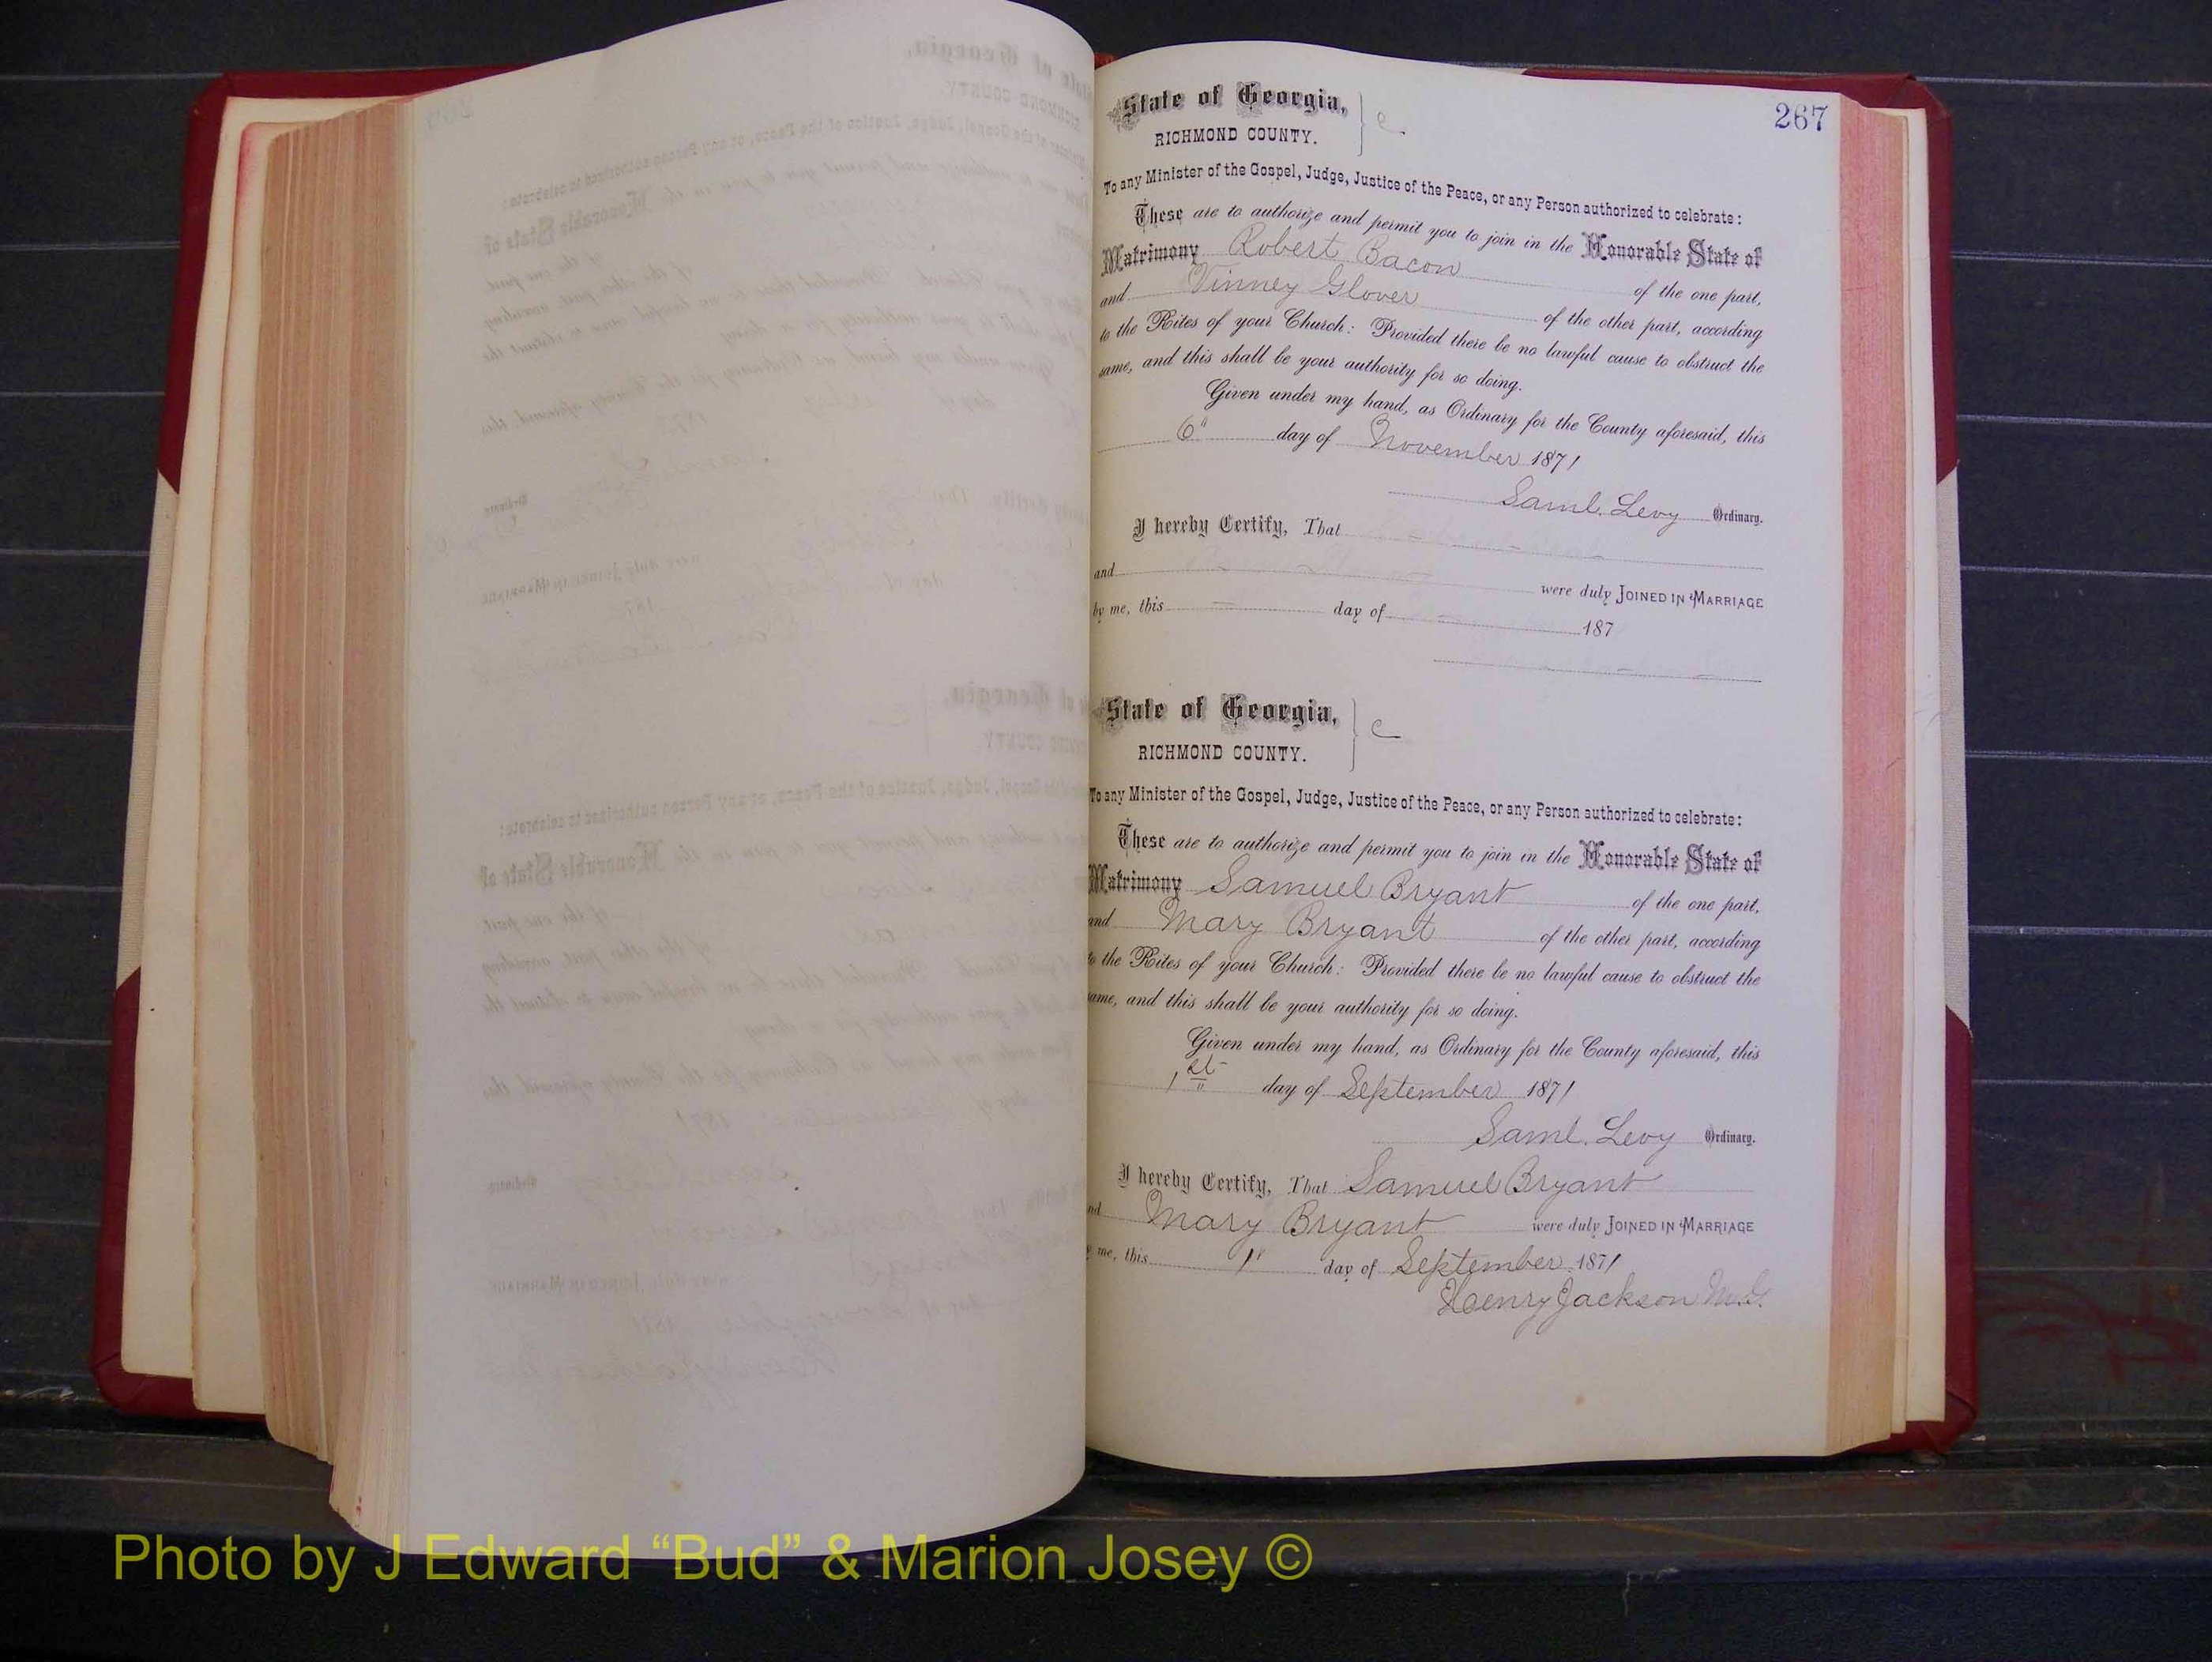 267
State of Georgia,
RICHMOND COUNTY. } c
To any Minister of the Gospel, Judge, Justice of the Peace, or any Person authorized to celebrate:
These are to authorize and permit you to join in the Honorable State of
Matrimony Robert Bacon of the one part,
and Vinney Glover of the other part, according
to the Rites of your Church: Provided there be no lawful cause to obstruct the
same, and this shall be your authority for so doing.
Given under my hand, as Ordinary for the County aforesaid, this
6" day of November 1871
Saml. Levy Ordinary.
I hereby Certify, That
and were duly JOINED IN MARRIAGE
by me, this day of 187
State of Georgia,
RICHMOND COUNTY. } c
To any Minister of the Gospel, Judge, Justice of the Peace, or any Person authorized to celebrate:
These are to authorize and permit you to join in the Honorable State of
Matrimony Samuel Bryant of the one part,
and Mary Bryant of the other part, according
to the Rites of your Church: Provided there be no lawful cause to obstruct the
same, and this shall be your authority for so doing.
Given under my hand, as Ordinary for the County aforesaid, this
1st day of September 1871
Saml. Levy Ordinary.
I hereby Certify, That Samuel Bryant
and Mary Bryant were duly JOINED IN MARRIAGE
by me, this 1" day of September 1871
Henry Jackson M.G.
Photo by J Edward “Bud” & Marion Josey ©